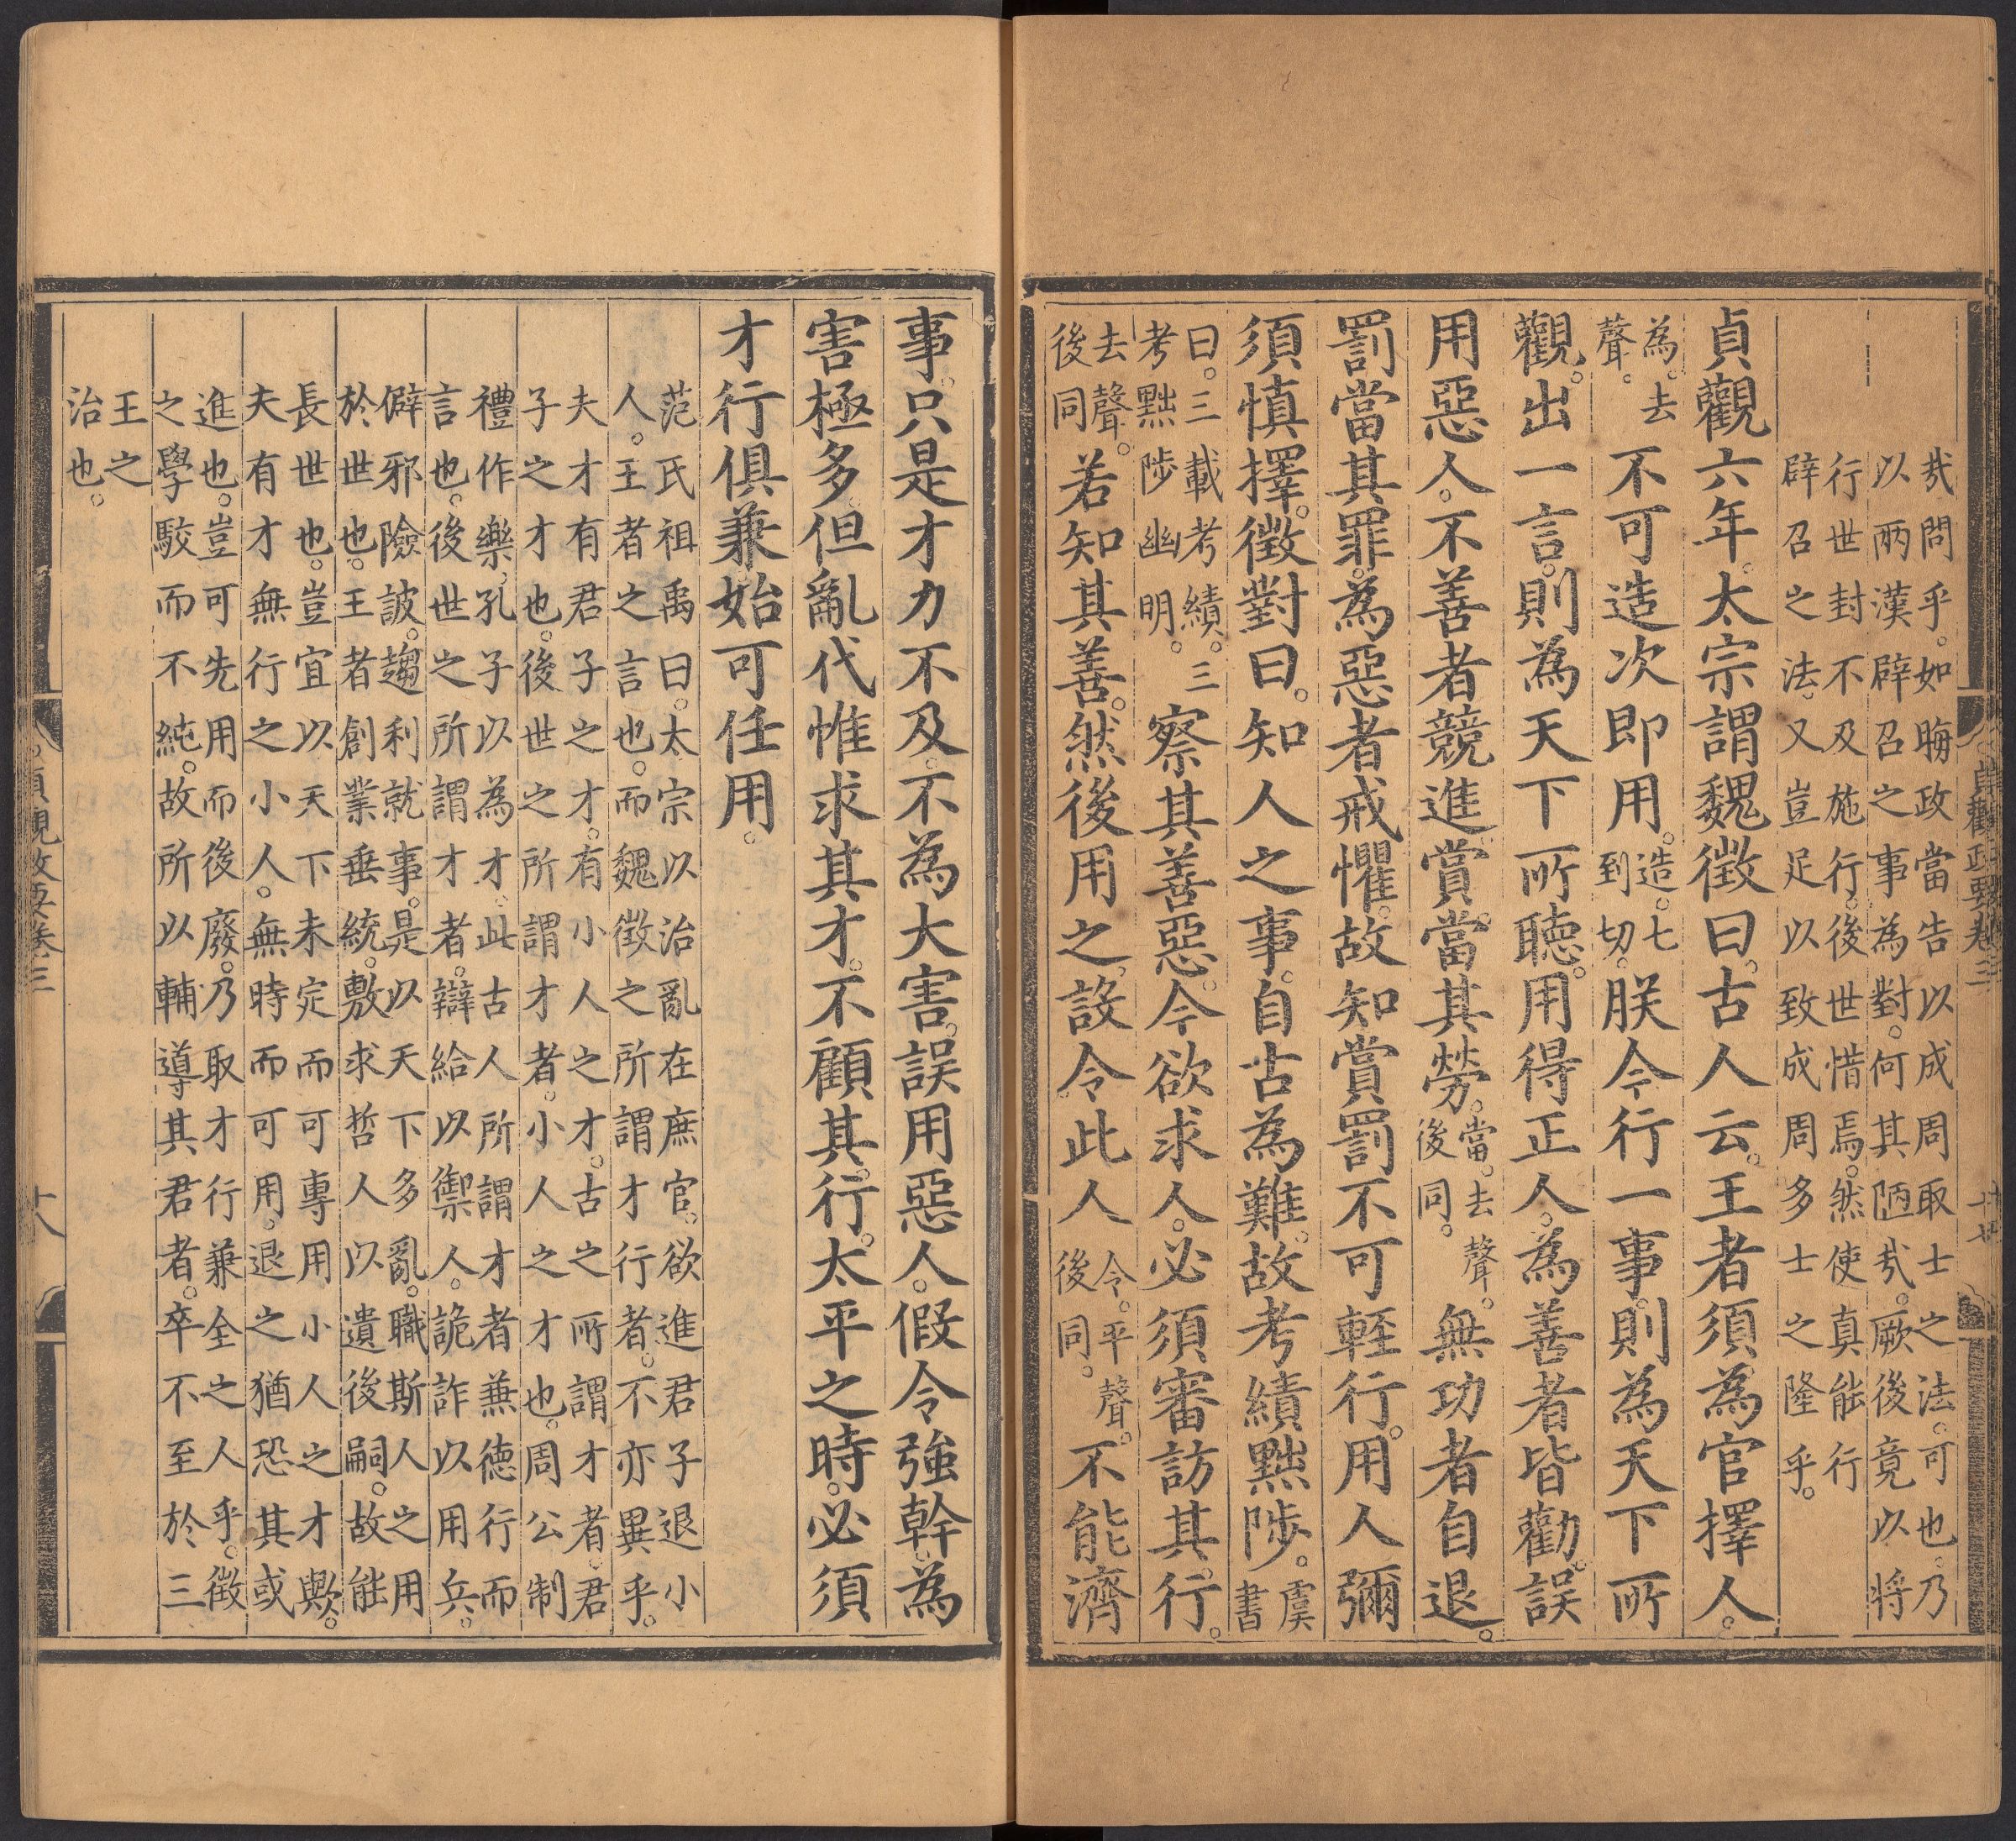 哉問乎。如晦政當告以成周取士之法。可也。乃
以兩漢辟召之事為對。何其陋哉。厥後竟以將
行世封不及施行。後世惜焉。然使真能行
辟召之法。又豈足以致成周多士之隆乎。
貞觀六年。太宗謂魏徵曰。古人云。王者須為官擇人。
為。去聲。不可造次即用。造。七到切。朕今行一事。則為天下所
觀。出一言。則為天下所聽。用得正人。為善者皆勸。誤
用惡人。不善者競進。賞當其勞。當。去聲。後同。無功者自退。
罰當其罪。為惡者戒懼。故知賞罰不可輕行。用人彌
須慎擇。徵對曰。知人之事。自古為難。故考績黜陟。虞書
曰。三載考績。三考黜陟幽明。察其善惡。今欲求人。必須審訪其行。
去聲。後同若知其善。然後用之。設令此人令。平聲。後同。不能濟
事。只是才力不及。不為大害。誤用惡人。假令強幹。為
害極多。但亂代惟求其才。不顧其行。太平之時。必須
才行俱兼。始可任用。
范氏祖禹曰。太宗以治亂在庶官。欲進君子退小
人。王者之言也。而魏徵之所謂才行者。不亦異乎。
夫才有君子之才。有小人之才。古之所謂才者。君
子之才也。後世之所謂才者。小人之才也。周公制
禮作樂。孔子以為才。此古人所謂才者兼德行而
言也。後世之所謂才者。辯給以禦人。詭詐以用兵。
僻邪險詖。趨利就事。是以天下多亂。職斯人之用
於世也。王者創業垂統。敷求哲人。以遺後嗣。故能
長世也。豈宜以天下未定而可專用小人之才歟。
夫有才無行之小人。無時而可用。退之猶恐其或
進也。豈可先用而後廢。乃取才行兼全之人乎。徵
之學駁而不純。故所以輔導其君者。卒不至於三
王之
治也。
貞觀政要卷三
十八